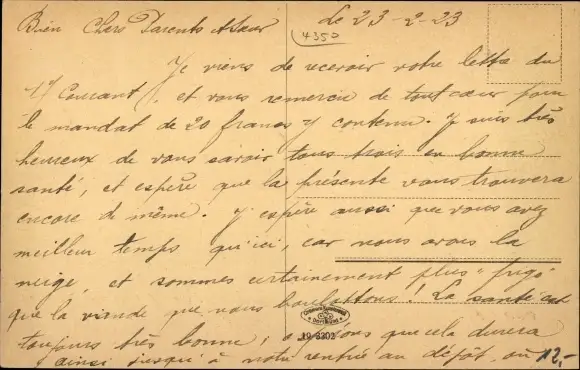 Bien Chers Parents et Sœur le 23-2-23
4350
Je viens de recevoir votre lettre du
17 Courant, et vous remercie de tout cœur pour
le mandat de 20 francs y contenu. Je suis très
heureux de vous savoir tous trois en bonne
santé, et espère que la présente vous trouvera
encore de même. J'espère aussi que vous avez
meilleur temps qu'ici, car nous avons la
neige, et sommes certainement plus "frigo"
que la viande que nous boulottons! La santé est
toujours très bonne, espérons que cela durera
ainsi jusqu'à notre rentrée au dépôt, où
19 3302
12,-